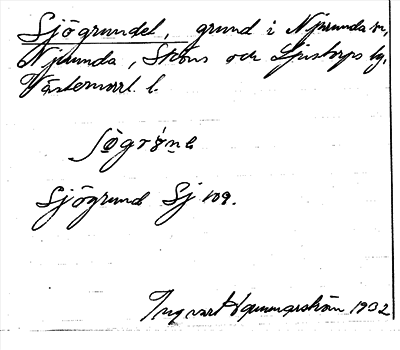 Sjögrundet, grund i Njurunda sn,
Njurunda, Sköns och Ljustorps tg,
Västernorrl. l.
Sjögrund Sj 109.
Ingvar Hammarström 1932